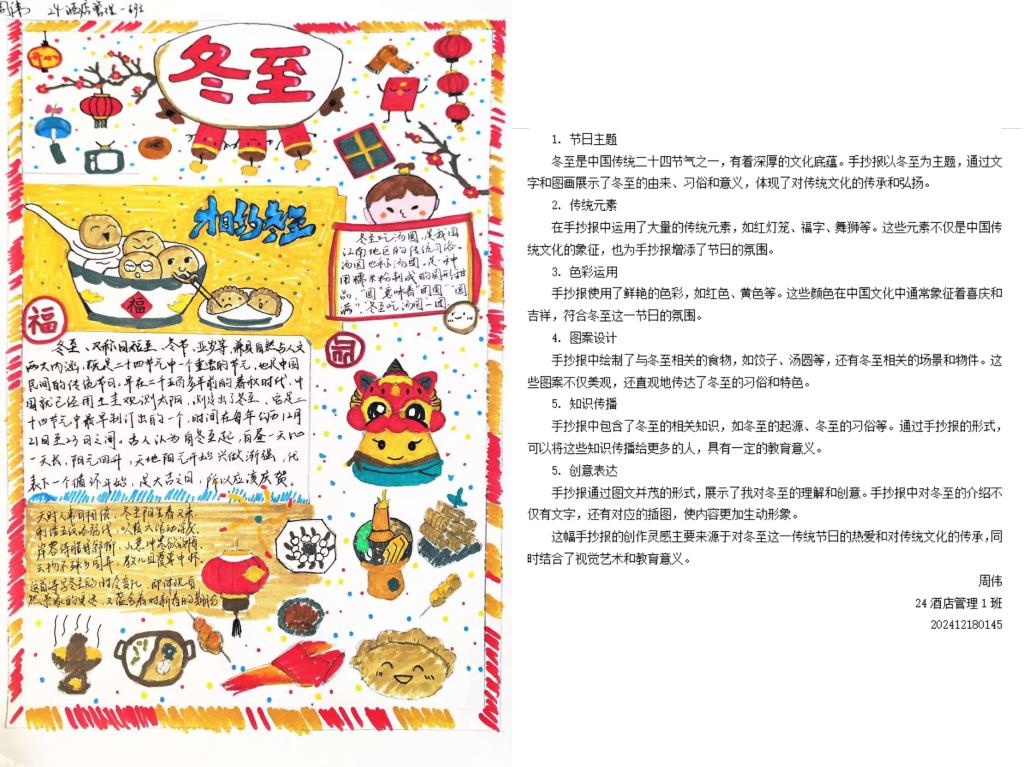 周伟 24酒店管理一班
冬至
相约冬至
福
福
冬至吃汤圆,是我国
江南地区的传统习俗
汤圆也称汤团。是一种
用糯米粉制成的圆形甜
品,“圆”意味着“团圆”“圆
满”,“冬至吃汤圆一团”
冬至,又称日短至、冬节、亚岁等,兼具自然与人文
两大内涵,既是二十四节气中一个重要的节气,也是中国
民间的传统节日。早在二千五百多年前的春秋时代,中
国就已经用土圭观测太阳,测定出了冬至,它是二
十四节气中最早制订出的一个,时间在每年公历12月
21日至23日之间。古人认为自冬至起,白昼一天比
一天长,阳气回升,天地阳气开始兴做渐强,代
表下一个循环开始,是大吉之日,所以应该庆贺。
天时人事日相催,冬至阳生春又来,
刺绣五纹添弱线,吹葭六琯动浮灰。
岸容待腊将舒柳,山意冲寒欲放梅。
云物不殊乡国异,教儿且覆掌中杯。
这首诗写冬至的时令变化,即体现自
然景象的更迭,又蕴含着对新春的期盼
1. 节日主题
冬至是中国传统二十四节气之一,有着深厚的文化底蕴。手抄报以冬至为主题,通过文
字和图画展示了冬至的由来、习俗和意义,体现了对传统文化的传承和弘扬。
2. 传统元素
在手抄报中运用了大量的传统元素,如红灯笼、福字、舞狮等。这些元素不仅是中国传
统文化的象征,也为手抄报增添了节日的氛围。
3. 色彩运用
手抄报使用了鲜艳的色彩,如红色、黄色等。这些颜色在中国文化中通常象征着喜庆和
吉祥,符合冬至这一节日的氛围。
4. 图案设计
手抄报中绘制了与冬至相关的食物,如饺子、汤圆等,还有冬至相关的场景和物件。这
些图案不仅美观,还直观地传达了冬至的习俗和特色。
5. 知识传播
手抄报中包含了冬至的相关知识,如冬至的起源、冬至的习俗等。通过手抄报的形式,
可以将这些知识传播给更多的人,具有一定的教育意义。
5. 创意表达
手抄报通过图文并茂的形式,展示了我对冬至的理解和创意。手抄报中对冬至的介绍不
仅有文字,还有对应的插图,使内容更加生动形象。
这幅手抄报的创作灵感主要来源于对冬至这一传统节日的热爱和对传统文化的传承,同
时结合了视觉艺术和教育意义。
周伟
24 酒店管理 1 班
202412180145